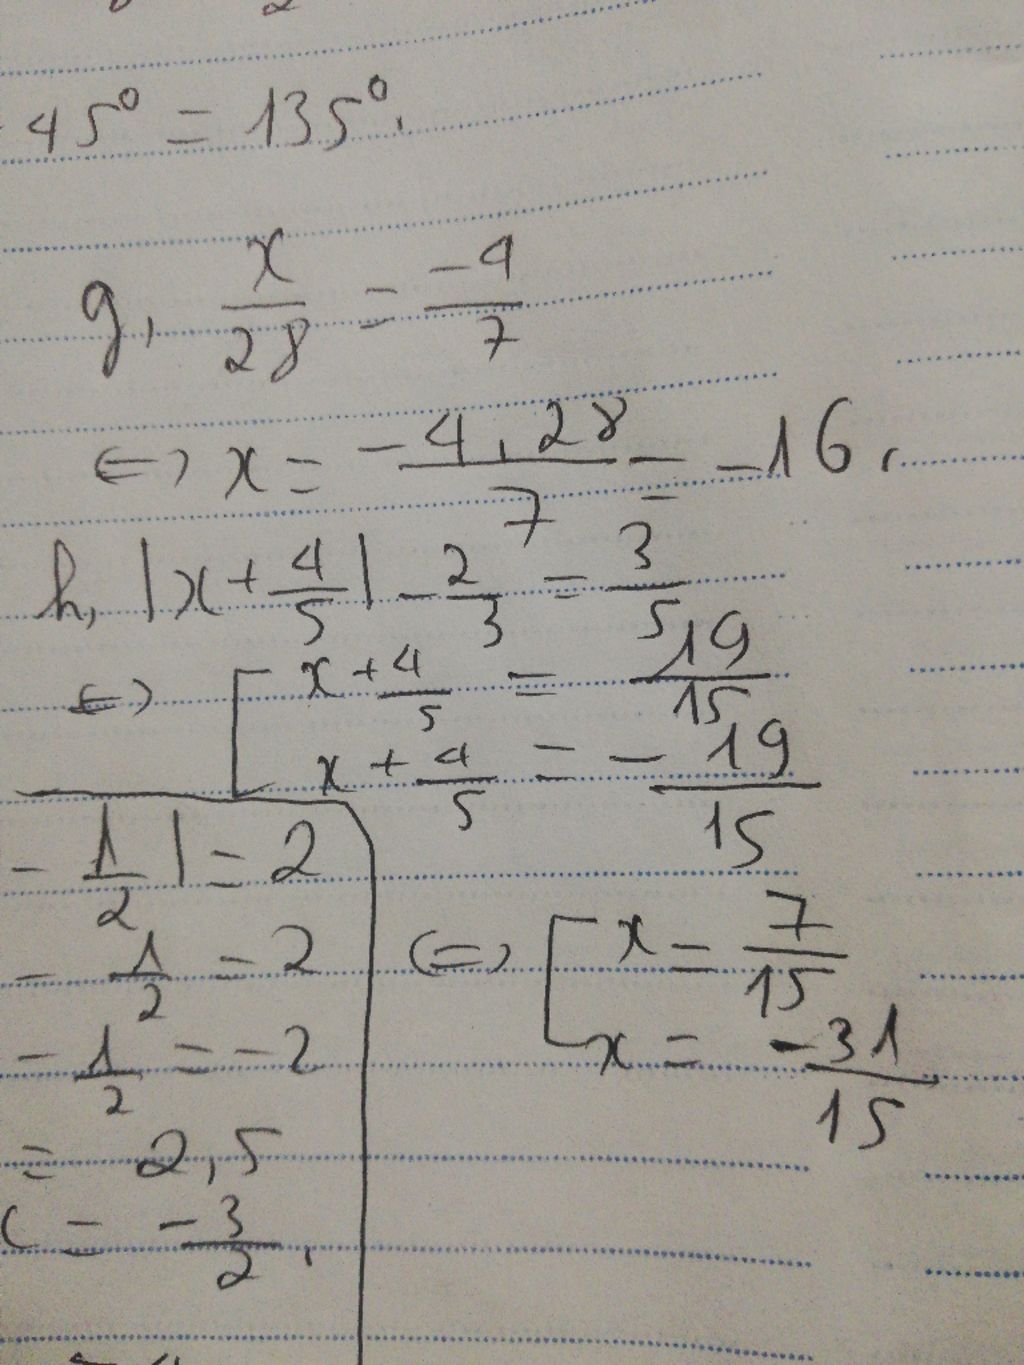 45° = 135°.
g, x/28 = -4/7
⇔ x = -4.28/7 = -16.
h, |x + 4/5| - 2/3 = 3/5
⇔ [ x + 4/5 = 19/15
x + 4/5 = -19/15
⇔ [ x = 7/15
x = -31/15
- 1/2 | = 2
- 1/2 = 2
- 1/2 = -2
= 2,5
= -3/2.